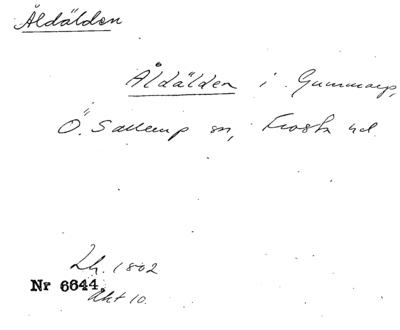 Åldälden
Åldälden i Gummarp,
Ö. Sallerup sn, Frosta hd.
Lh. 1802
Nr 6644.
Akt 10.